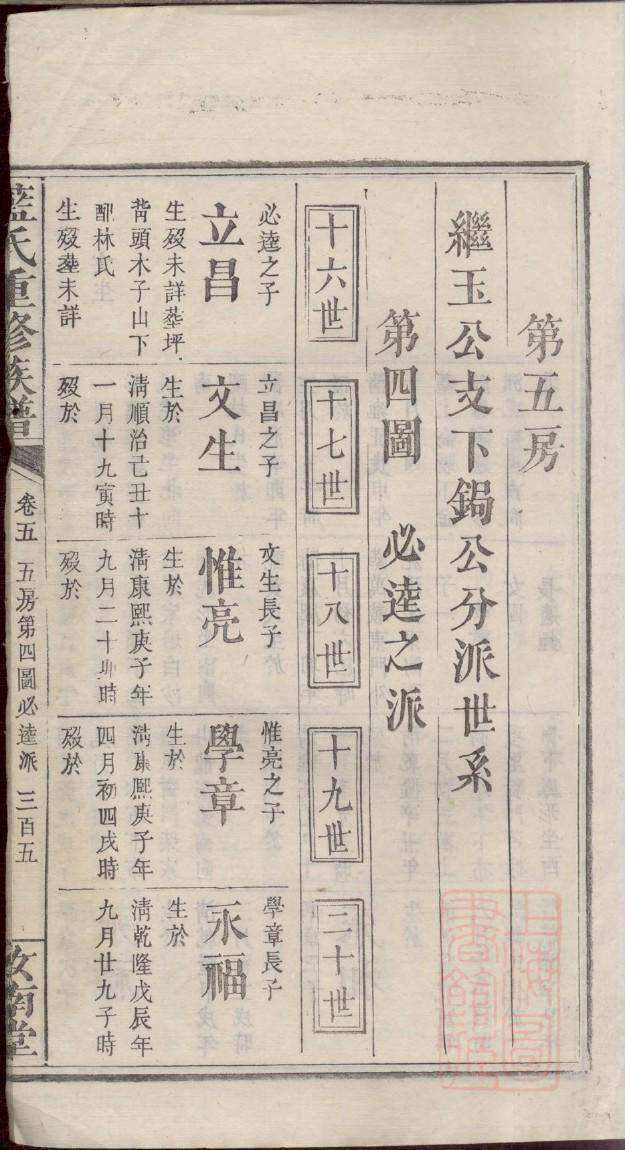 第五房
繼玉公支下鍋公分派世系
第四圖 必達之派
十六世
十七世
十八世
十九世
二十世
必達之子
立昌
生歿未詳塟坪
背頭木子山下
配林氏
生歿塟未詳
立昌之子
文生
生於
淸順治己丑十
一月十九寅時
歿於
文生長子
惟亮
生於
淸康熙庚子年
九月二十卯時
歿於
惟亮之子
學章
生於
淸康熙庚子年
四月初四戌時
歿於
學章長子
永福
生於
淸乾隆戊辰年
九月廿九子時
藍氏重修族譜
卷五 五房第四圖必達派 三百五
汝南堂